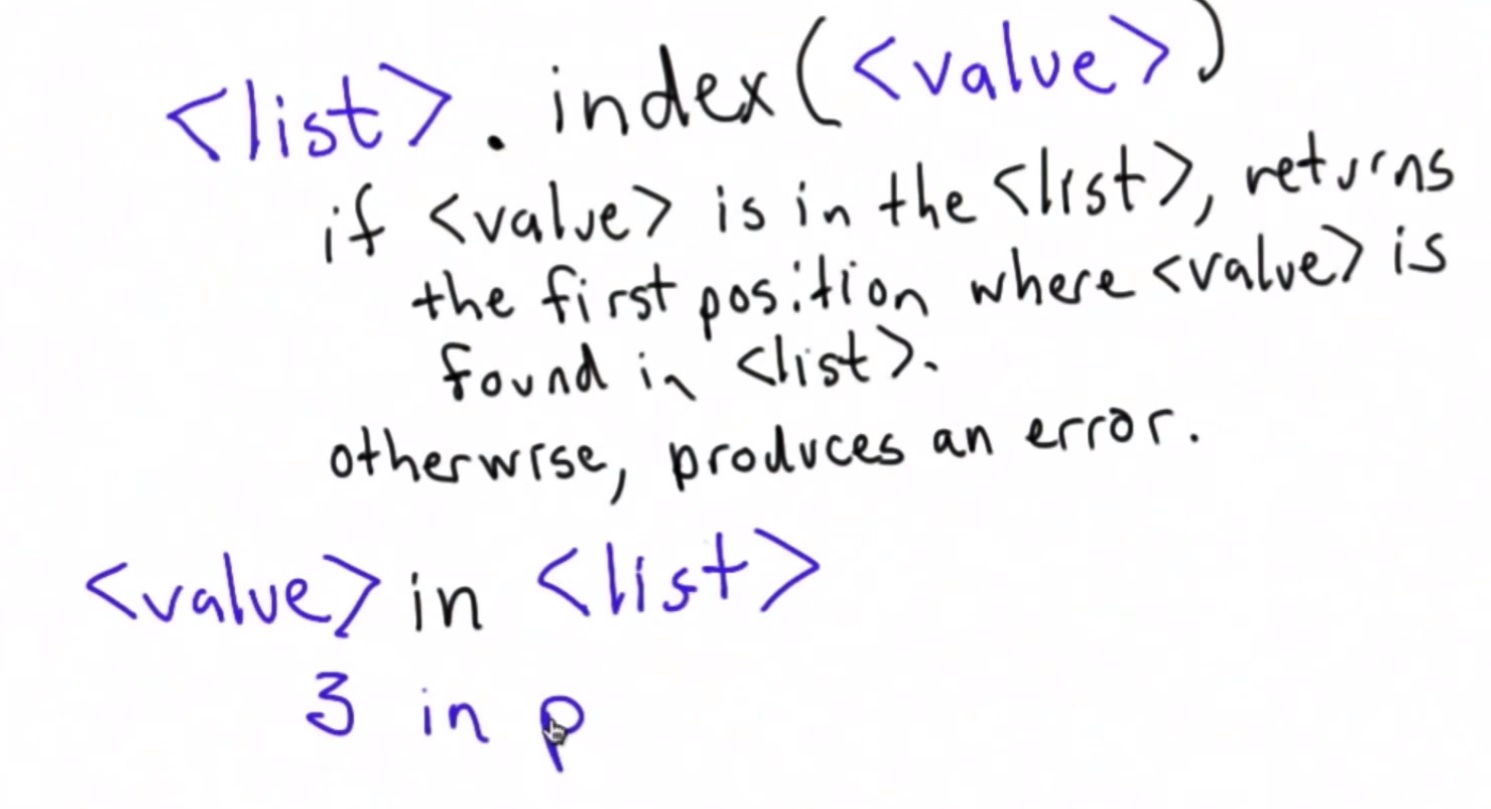 <list>. index(<value>)
if <value> is in the <list>, returns
the first position where <value> is
found in <list>.
otherwise, produces an error.
<value> in <list>
3 in p